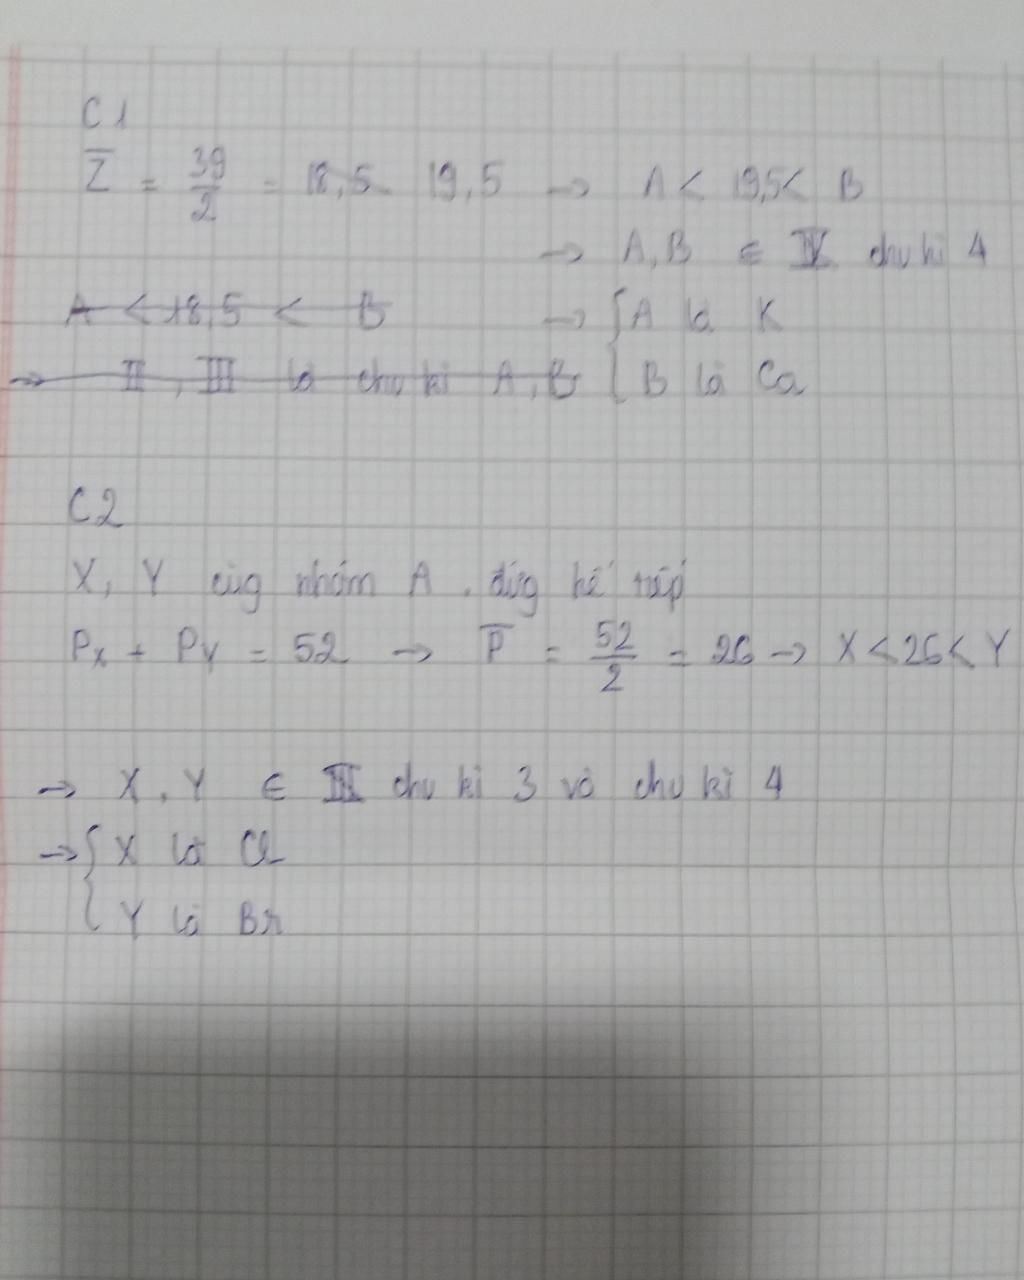 C1
Z̅ = 39/2 = 18,5 19,5 → A < 19,5 < B
→ A, B ∈ IV chu kì 4
A < 18,5 < B → { A là K
→ II, III là chu kì A, B { B là Ca
C2
X, Y cùg nhóm A, đứg kế tiếp
Px + PY = 52 → P̅ = 52/2 = 26 → X < 26 < Y
→ X, Y ∈ III chu kì 3 và chu kì 4
→ { X là Cl
{ Y là Br